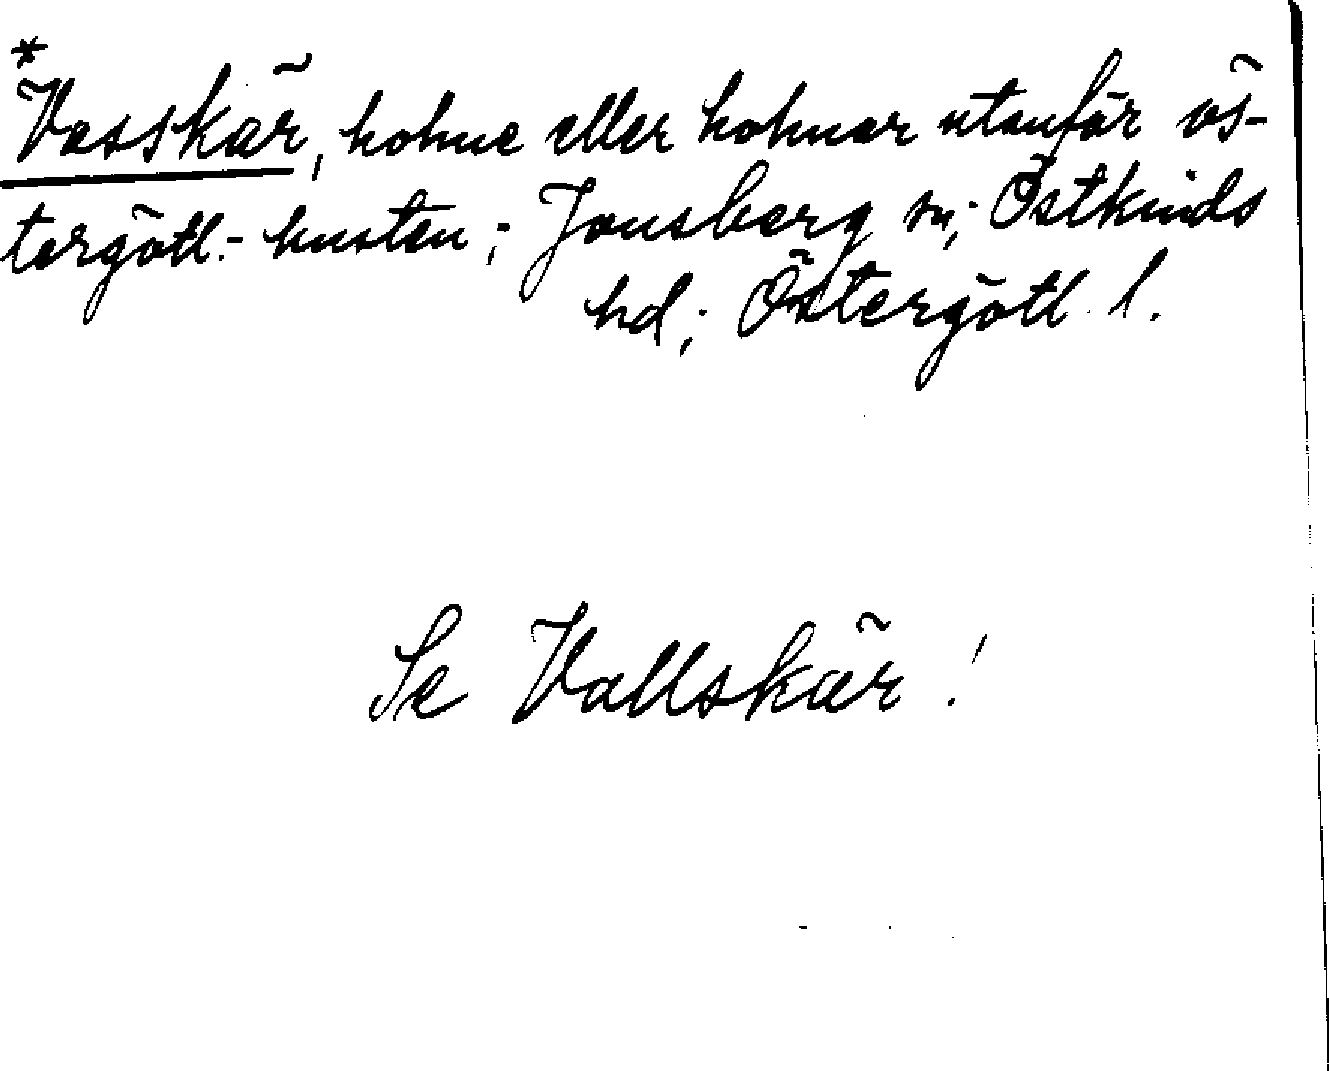 *
Vasskär, holme eller holmar utanför ös-
tergötl.-kusten; Jonsberg sn; Östkinds
hd; Östergötl. l.
Se Vallskär!